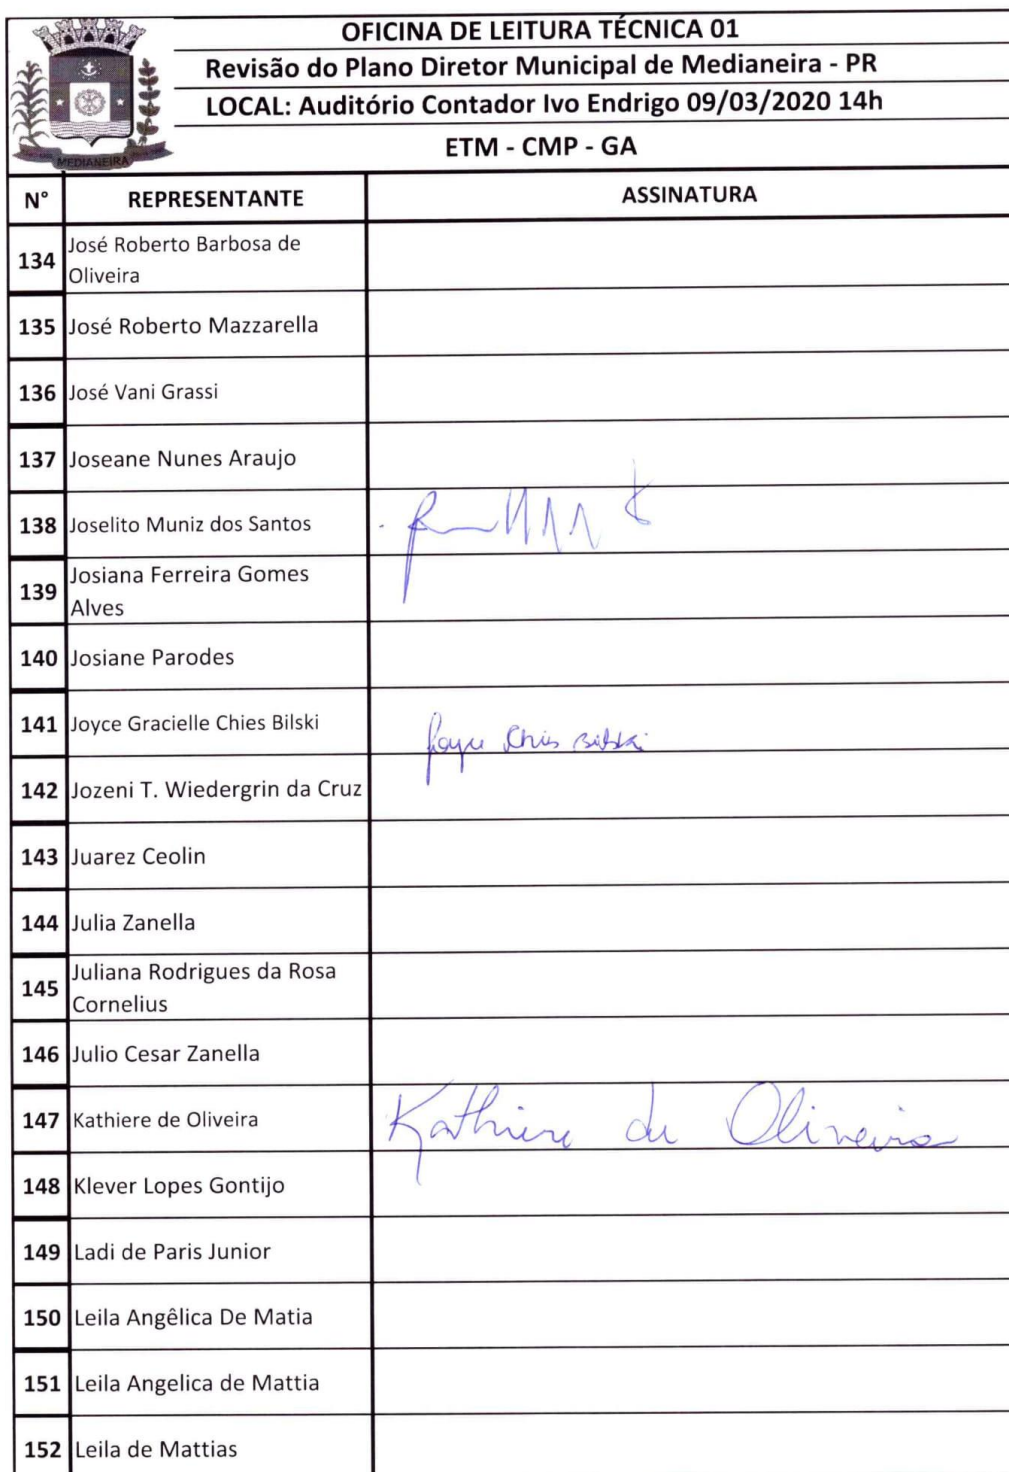 OFICINA DE LEITURA TÉCNICA 01
Revisão do Plano Diretor Municipal de Medianeira - PR
LOCAL: Auditório Contador Ivo Endrigo 09/03/2020 14h
ETM - CMP - GA
MEDIANEIRA
N° REPRESENTANTE ASSINATURA
134 José Roberto Barbosa de
Oliveira
135 José Roberto Mazzarella
136 José Vani Grassi
137 Joseane Nunes Araujo
138 Joselito Muniz dos Santos
139 Josiana Ferreira Gomes
Alves
140 Josiane Parodes
141 Joyce Gracielle Chies Bilski Joyce Chies Bilski
142 Jozeni T. Wiedergrin da Cruz
143 Juarez Ceolin
144 Julia Zanella
145 Juliana Rodrigues da Rosa
Cornelius
146 Julio Cesar Zanella
147 Kathiere de Oliveira Kathiere de Oliveira
148 Klever Lopes Gontijo
149 Ladi de Paris Junior
150 Leila Angêlica De Matia
151 Leila Angelica de Mattia
152 Leila de Mattias